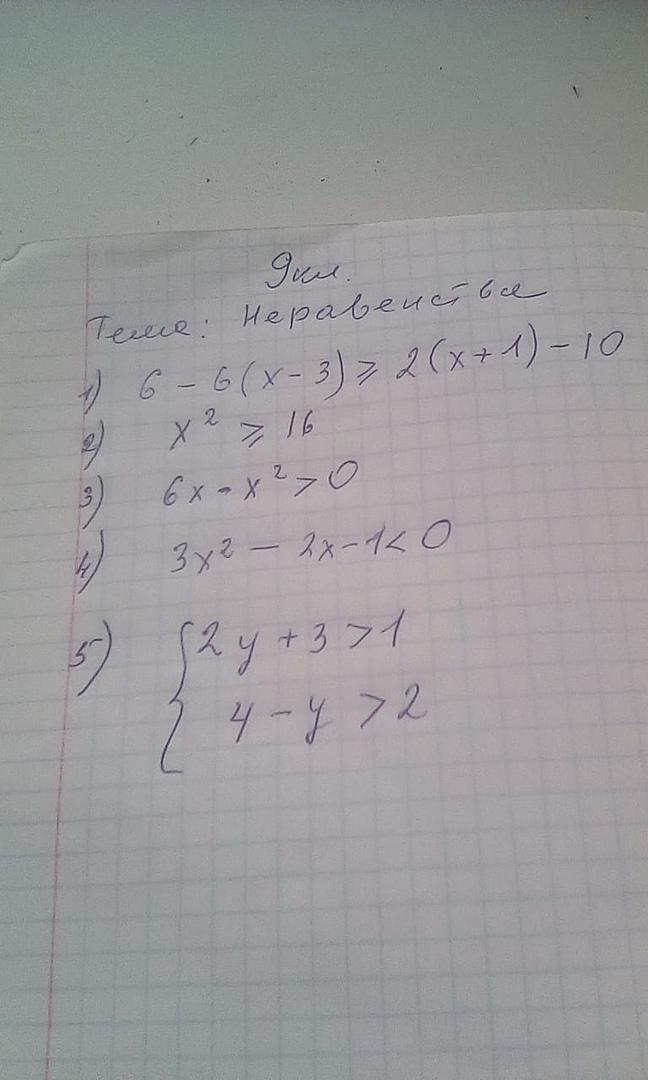 9 кл.
Тема: Неравенства
1) 6 - 6(x - 3) ⩾ 2(x + 1) - 10
2) x² ⩾ 16
3) 6x - x² > 0
4) 3x² - 2x - 1 < 0
5) { 2y + 3 > 1
4 - y > 2